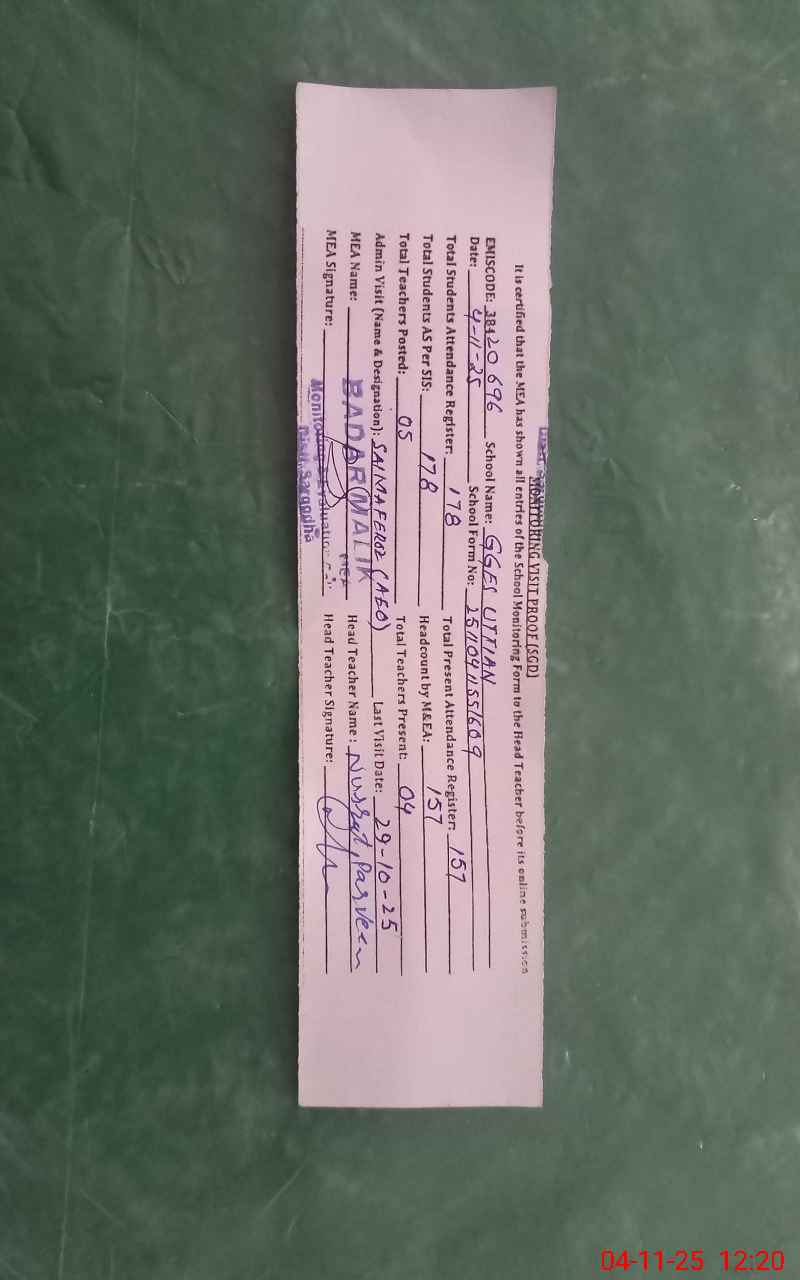 MONITORING VISIT PROOF (SGD)
It is certified that the MEA has shown all entries of the School Monitoring Form to the Head Teacher before its online submission
EMISCODE: 38420696 School Name: GGES UTTIAN
Date: 4-11-25 School Form No:
Total Students Attendance Register: 178 Total Present Attendance Register: 157
Total Students AS Per SIS: 178 Headcount by M&EA: 157
Total Teachers Posted: 05 Total Teachers Present: 04
Admin Visit (Name & Designation): SAIMA FEROZ (AEO) Last Visit Date: 29-10-25
MEA Name: BADAR MALIK MEA Head Teacher Name: Nusrat Parveen
MEA Signature: Head Teacher Signature:
Monitoring & Evaluation
Distt. Sargodha
04-11-25 12:20